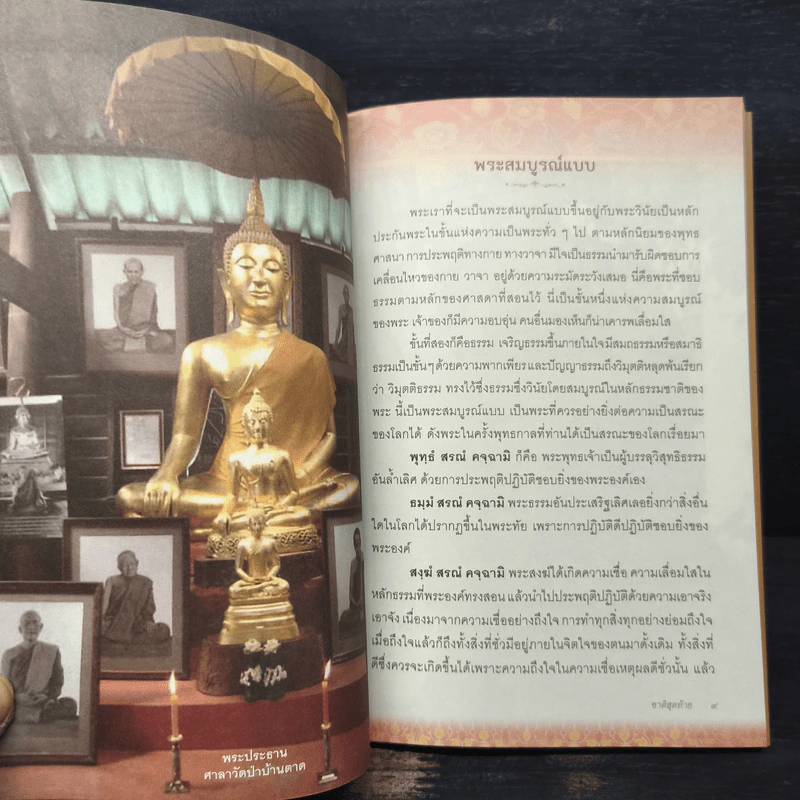 พระประธาน
ศาลาวัดป่าบ้านตาด
พระสมบูรณ์แบบ
พระเราที่จะเป็นพระสมบูรณ์แบบขึ้นอยู่กับพระวินัยเป็นหลัก
ประกันพระในขั้นแห่งความเป็นพระทั่ว ๆ ไป ตามหลักนิยมของพุทธ
ศาสนา การประพฤติทางกาย ทางวาจา มีใจเป็นธรรมนำมารับผิดชอบการ
เคลื่อนไหวของกาย วาจา อยู่ด้วยความระมัดระวังเสมอ นี่คือพระที่ชอบ
ธรรมตามหลักของศาสดาที่สอนไว้ นี่เป็นขั้นหนึ่งแห่งความสมบูรณ์
ของพระ เจ้าของก็มีความอบอุ่น คนอื่นมองเห็นก็น่าเคารพเลื่อมใส
ขั้นที่สองก็คือธรรม เจริญธรรมขึ้นภายในใจมีสมถธรรมหรือสมาธิ
ธรรมเป็นขั้นๆ ด้วยความพากเพียรและปัญญาธรรมถึงวิมุตติหลุดพ้นเรียก
ว่า วิมุตติธรรม ทรงไว้ซึ่งธรรมซึ่งวินัยโดยสมบูรณ์ในหลักธรรมชาติของ
พระ นี่เป็นพระสมบูรณ์แบบ เป็นพระที่ควรอย่างยิ่งต่อความเป็นสรณะ
ของโลกได้ ดังพระในครั้งพุทธกาลที่ท่านได้เป็นสรณะของโลกเรื่อยมา
พุทฺธํ สรณํ คจฺฉามิ ก็คือ พระพุทธเจ้าเป็นผู้บรรลุวิสุทธิธรรม
อันล้ำเลิศ ด้วยการประพฤติปฏิบัติชอบยิ่งของพระองค์เอง
ธมฺมํ สรณํ คจฺฉามิ พระธรรมอันประเสริฐเลิศเลอยิ่งกว่าสิ่งอื่น
ใดในโลกได้ปรากฏขึ้นในพระทัย เพราะการปฏิบัติดีปฏิบัติชอบยิ่งของ
พระองค์
สงฺฆํ สรณํ คจฺฉามิ พระสงฆ์ได้เกิดความเชื่อ ความเลื่อมใสใน
หลักธรรมที่พระองค์ทรงสอน แล้วนำไปประพฤติปฏิบัติด้วยความเอาจริง
เอาจัง เนื่องมาจากความเชื่ออย่างถึงใจ การทำทุกสิ่งทุกอย่างย่อมถึงใจ
เมื่อถึงใจแล้วก็ถึงทั้งสิ่งที่ชั่วมีอยู่ภายในจิตใจของตนมาดั้งเดิม ทั้งสิ่งที่
ดีซึ่งควรจะเกิดขึ้นได้เพราะความถึงใจในความเชื่อเหตุผลดีชั่วนั้น แล้ว
ชาติสุดท้าย ๙